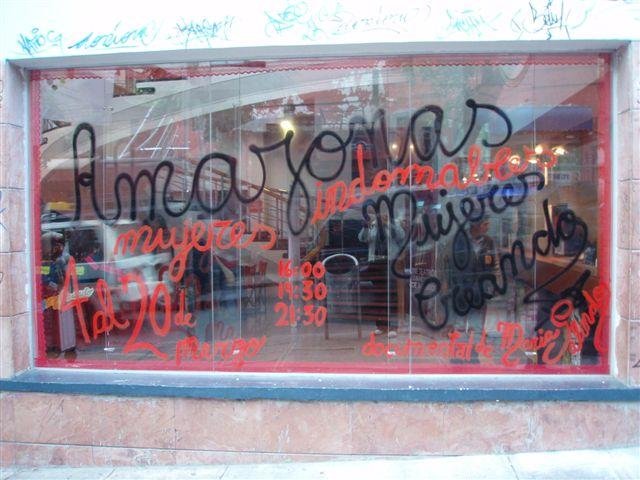 Amazonas
mujeres indomables
Mujeres
Creando
4 al 20 de
Marzo
16:00
19:30
21:30
documental de Maria Galindo